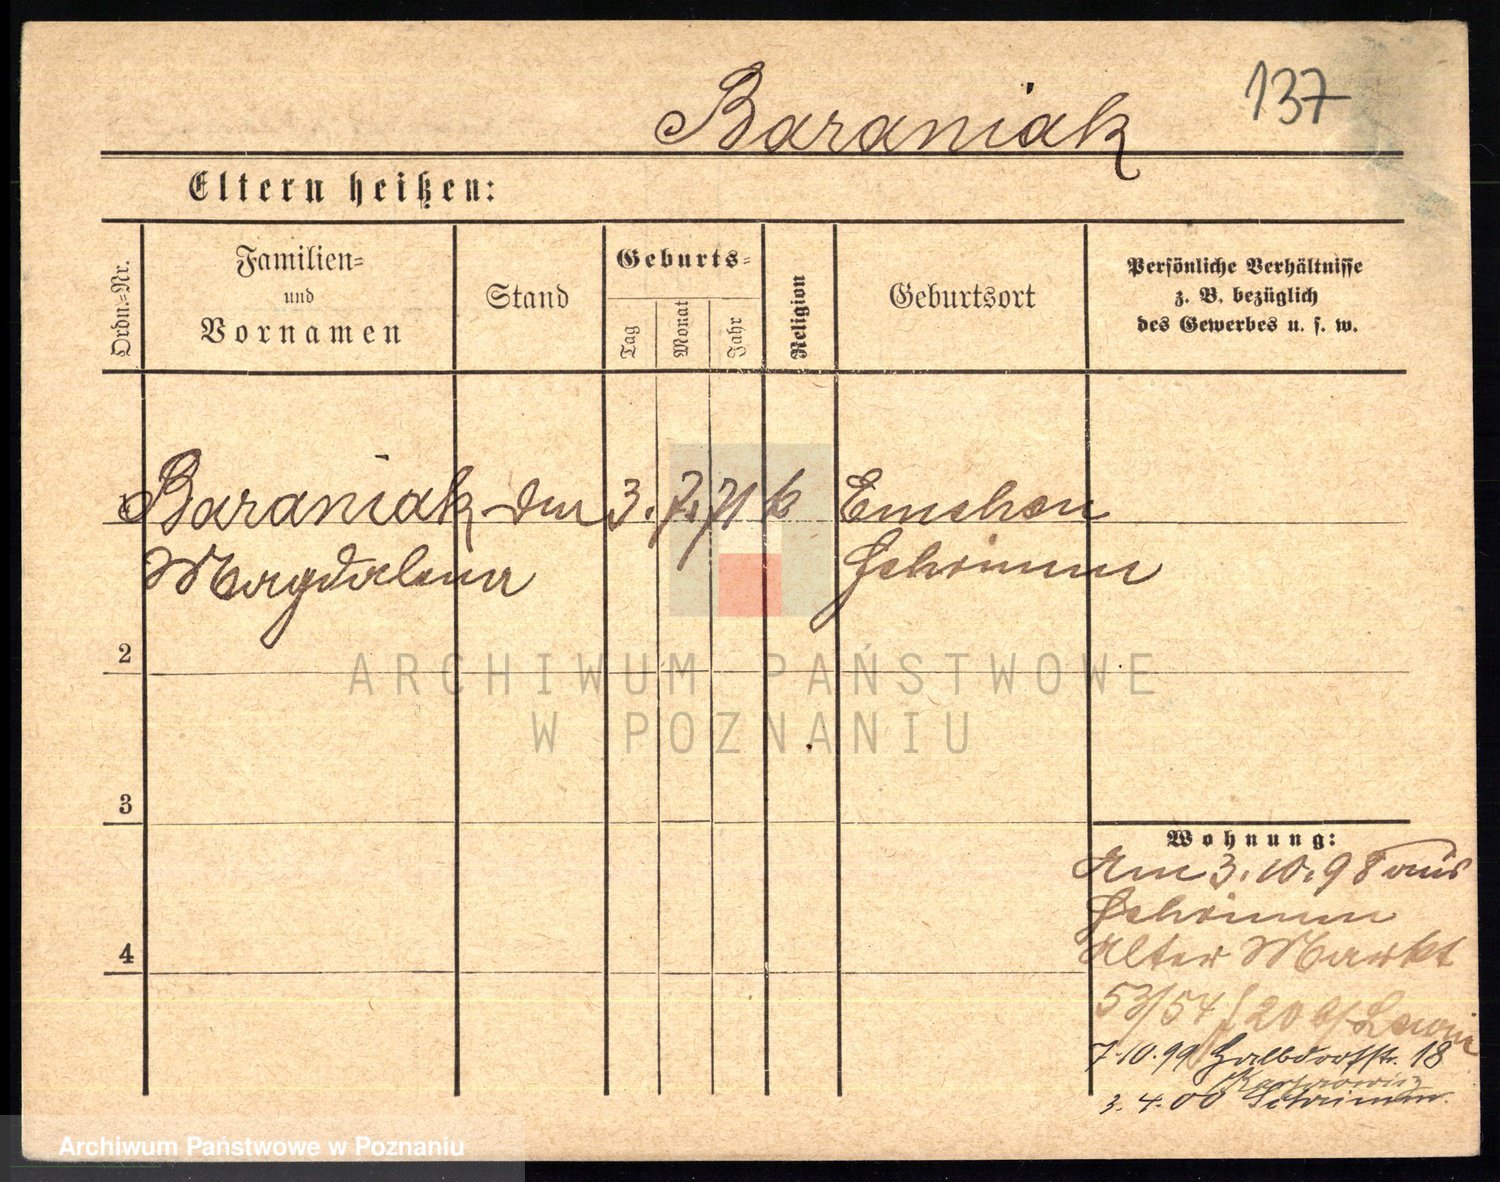 137
Baraniak
Eltern heißen:
Ordn.=Nr.
Familien=
und
Vornamen
Stand
Geburts=
Tag
Monat
Jahr
Religion
Geburtsort
Persönliche Verhältnisse
z. B. bezüglich
des Gewerbes u. s. w.
1
Baraniak
3. 7. 71 k
Emchen
Magdalena
Schrimm
2
ARCHIWUM PAŃSTWOWE
W POZNANIU
3
Wohnung:
Am 3. 10. 98 aus
Schrimm
Alter Markt
53/54
7.10.99 Halbdorfstr. 18
3. 4. 00 Schrimm.
4
Archiwum Państwowe w Poznaniu